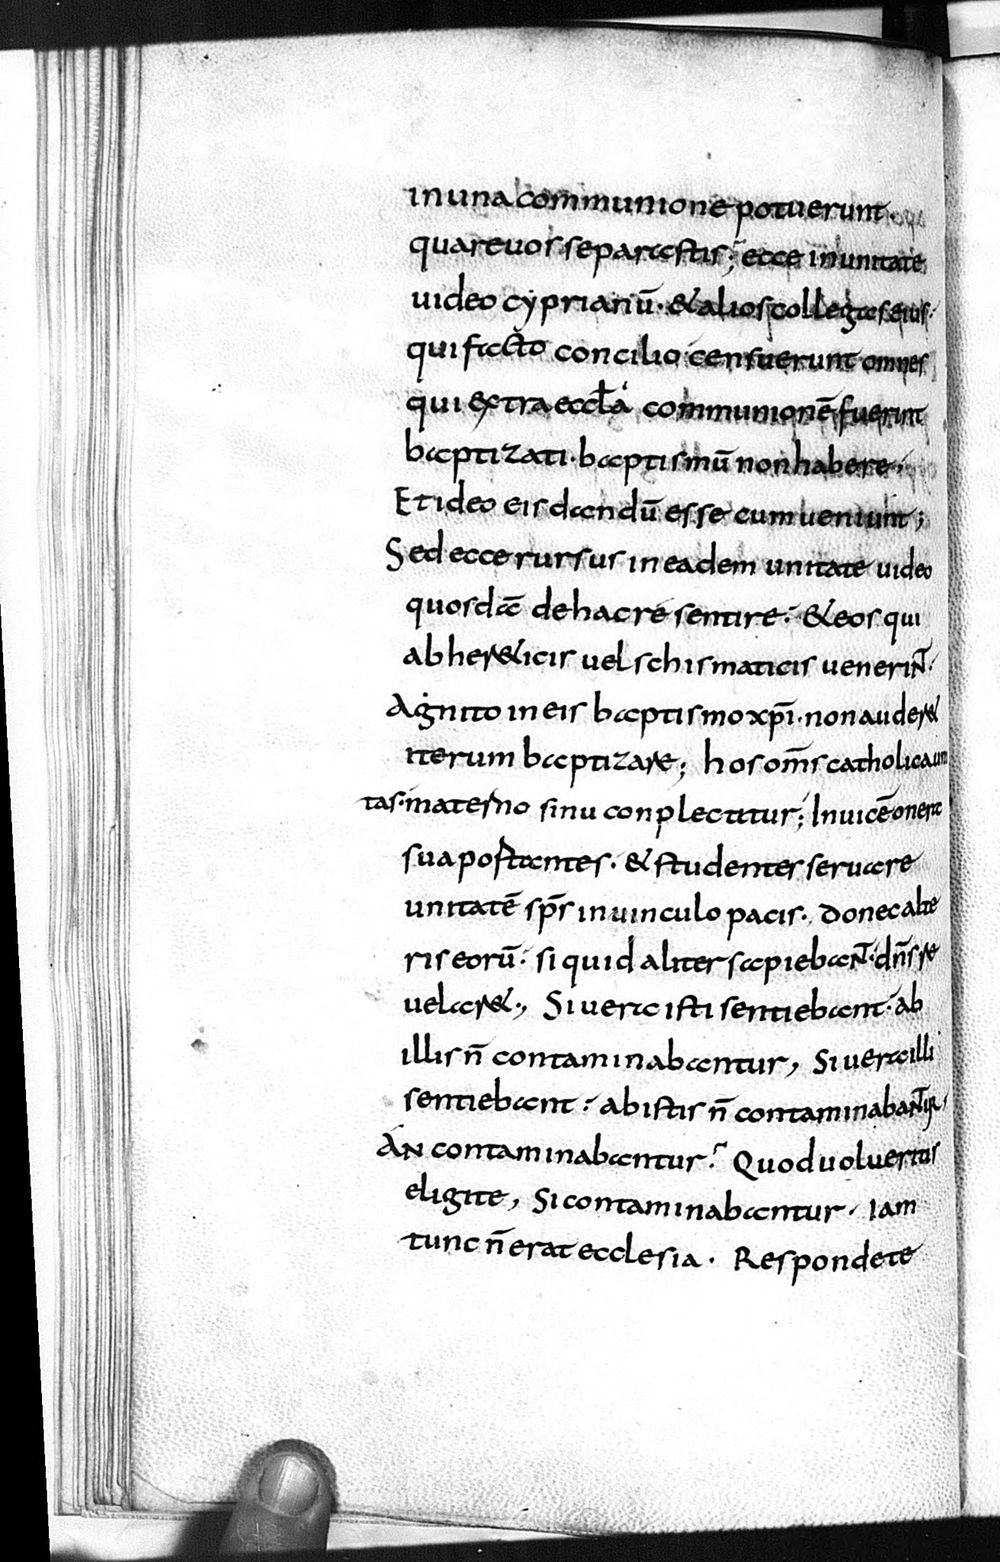 in una communione potuerunt.
quare uos separastis; ecce in unitate
uideo cyprianū. & alios collegas eius.
qui facto concilio censuerunt omnes
qui extra eccłā communionē fuerint
baptizati. baptismū non habere.
Et ideo eis dandū esse cum ueniunt;
Sed ecce rursus in eadem unitate uideo
quosdā de hac re sentire. & eos qui
ab her&icis uel schismaticis ueneriNT.
Agnito in eis baptismo xp̄i. non auder&
iterum baptizare; hos om̄s catholica uni
tas. materno sinu conplectitur; Inuicē onera
sua portantes. & studentes seruare
unitatē sp̄s in uinculo pacis. donec alte
ris eorū. si quid aliter sapiebaNT. dn̄s re
uelar&., Si uera isti sentiebant. ab
illis n̄ contaminabantur, Si uera illi
sentiebant. ab istis n̄ contaminabaNTur.
AN contaminabantur? Quod uolueritis
eligite, Si contaminabantur. Iam
tunc n̄ erat ecclesia. Respondete